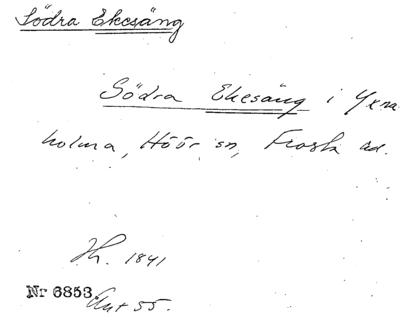 Södra Ekesäng
Södra Ekesäng i Yxna
holma, Höör sn, Frosta hd.
Hh. 1841
Nr 6853. Ant 55.